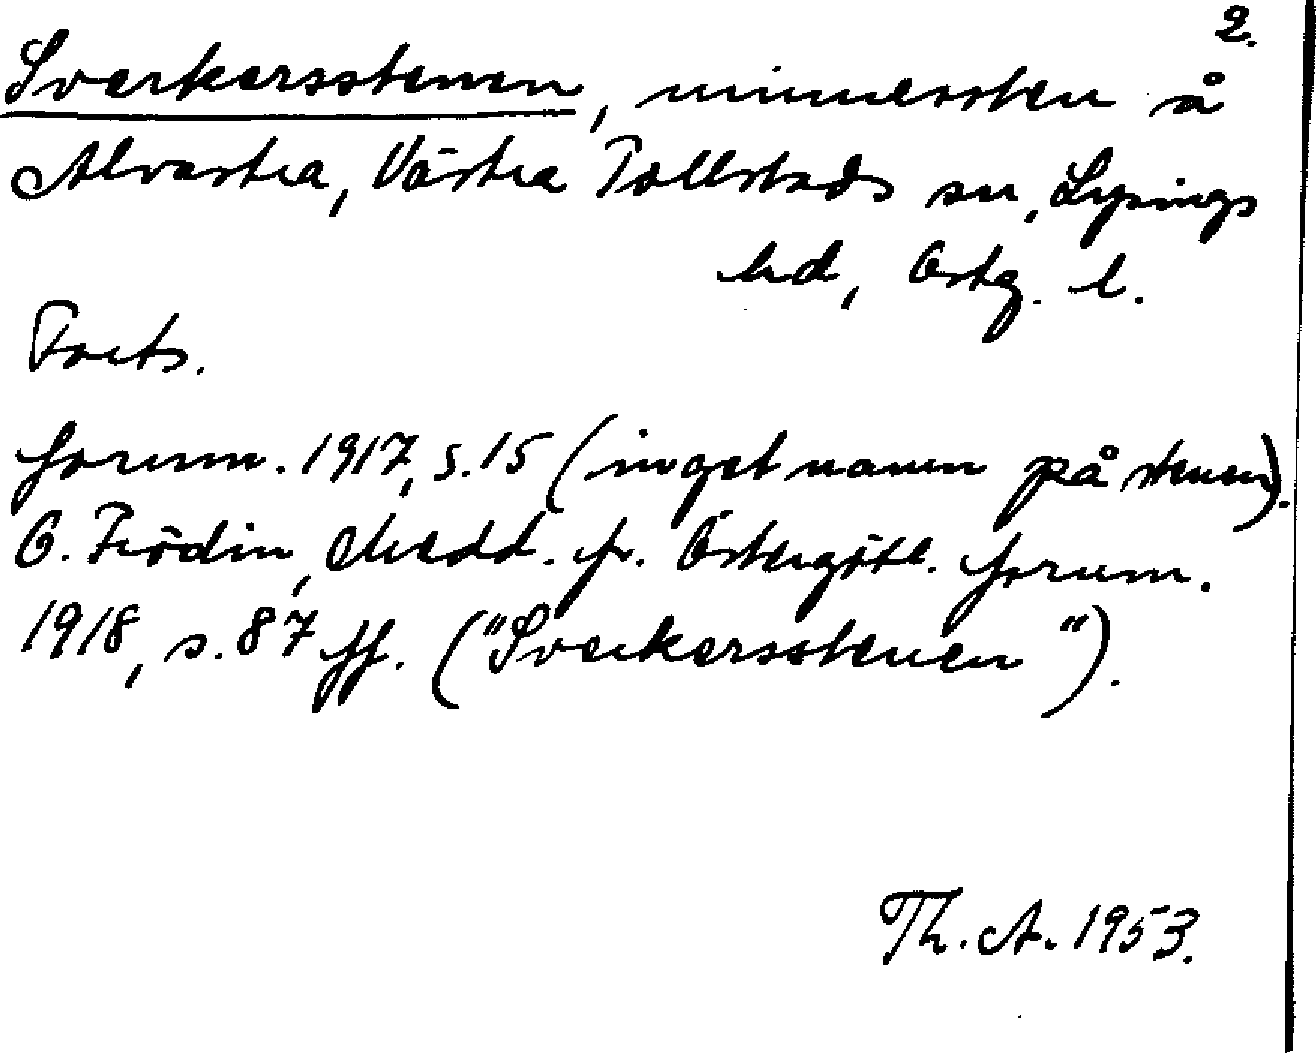 2.
Sverkersstenen, minnessten å
Alvastra, Västra Tollstads sn, Lysings
hd, Östg. l.
Forts.
fornm. 1917, s. 15 (inget namn på stenen).
O. Frödin, Medd. fr. Östergötl. fornm.
1918, s. 87 ff. ("Sverkersstenen").
Th. A. 1953.